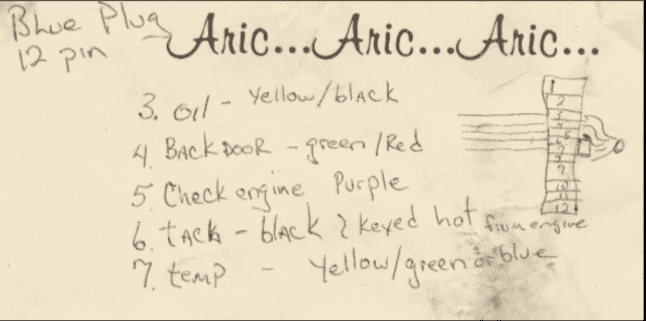 Blue Plug
12 pin
Aric...Aric...Aric...
3. oil - Yellow/black
4. BACK DOOR - green/Red
5. Check engine Purple
6. tACK - blACK 2 keyed hot from engine
7. temp - Yellow/green or blue
1
2
3
4
5
7
9
10
11
12